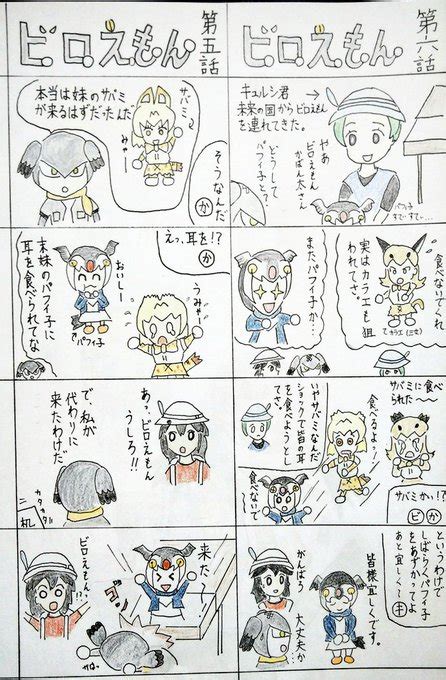 ビロえもん
第五話
サバミ
みゃー
本当は妹のサバミ
が来るはずだったんだ
そうなんだ
か
えっ、耳を!?
か
うみゃー
おいしー
パフィ子
末妹のパフィ子に
耳を食べられてな
あっ、ビロえもん
うしろ!!
で、私が
代わりに
来たわけだ
カタカタ
机
来た〜
ビロえもん!?
ビロえもん
第六話
キュルシ君
未来の国からビロえもん
を連れてきた。
やあ
ビロえもん
かばん太さん
どうして
パフィ子と?
パフィ子
食べないでくれ
実はカラエも狙
われてさ。
カラエ
またパフィ子か…
サバミに食べ
られた〜
食べるよォッ!
いやサバミなんだ
ショックで皆の耳
を食べようとし
てさ。
食べないで〜
サバミかい!?
ビ
か
というわけで
しばらくパフィ子
をあずかってよ
あと宜しく〜
キ
皆様宜しくです。
がんばろう
大丈夫か